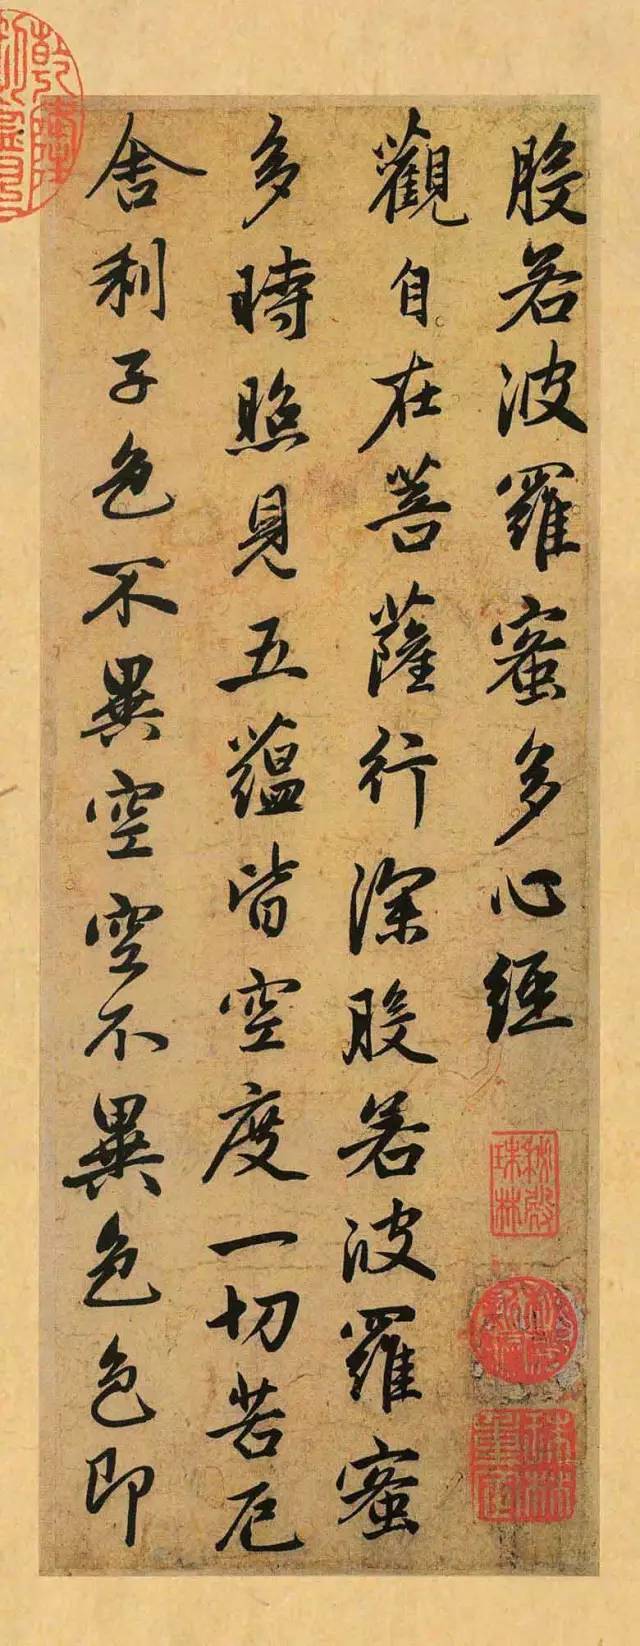 般若波羅蜜多心經
觀自在菩薩行深般若波羅蜜
多時照見五蘊皆空度一切苦厄
舍利子色不異空空不異色色即
秘殿珠林
秘殿新編
珠林重定
乾隆